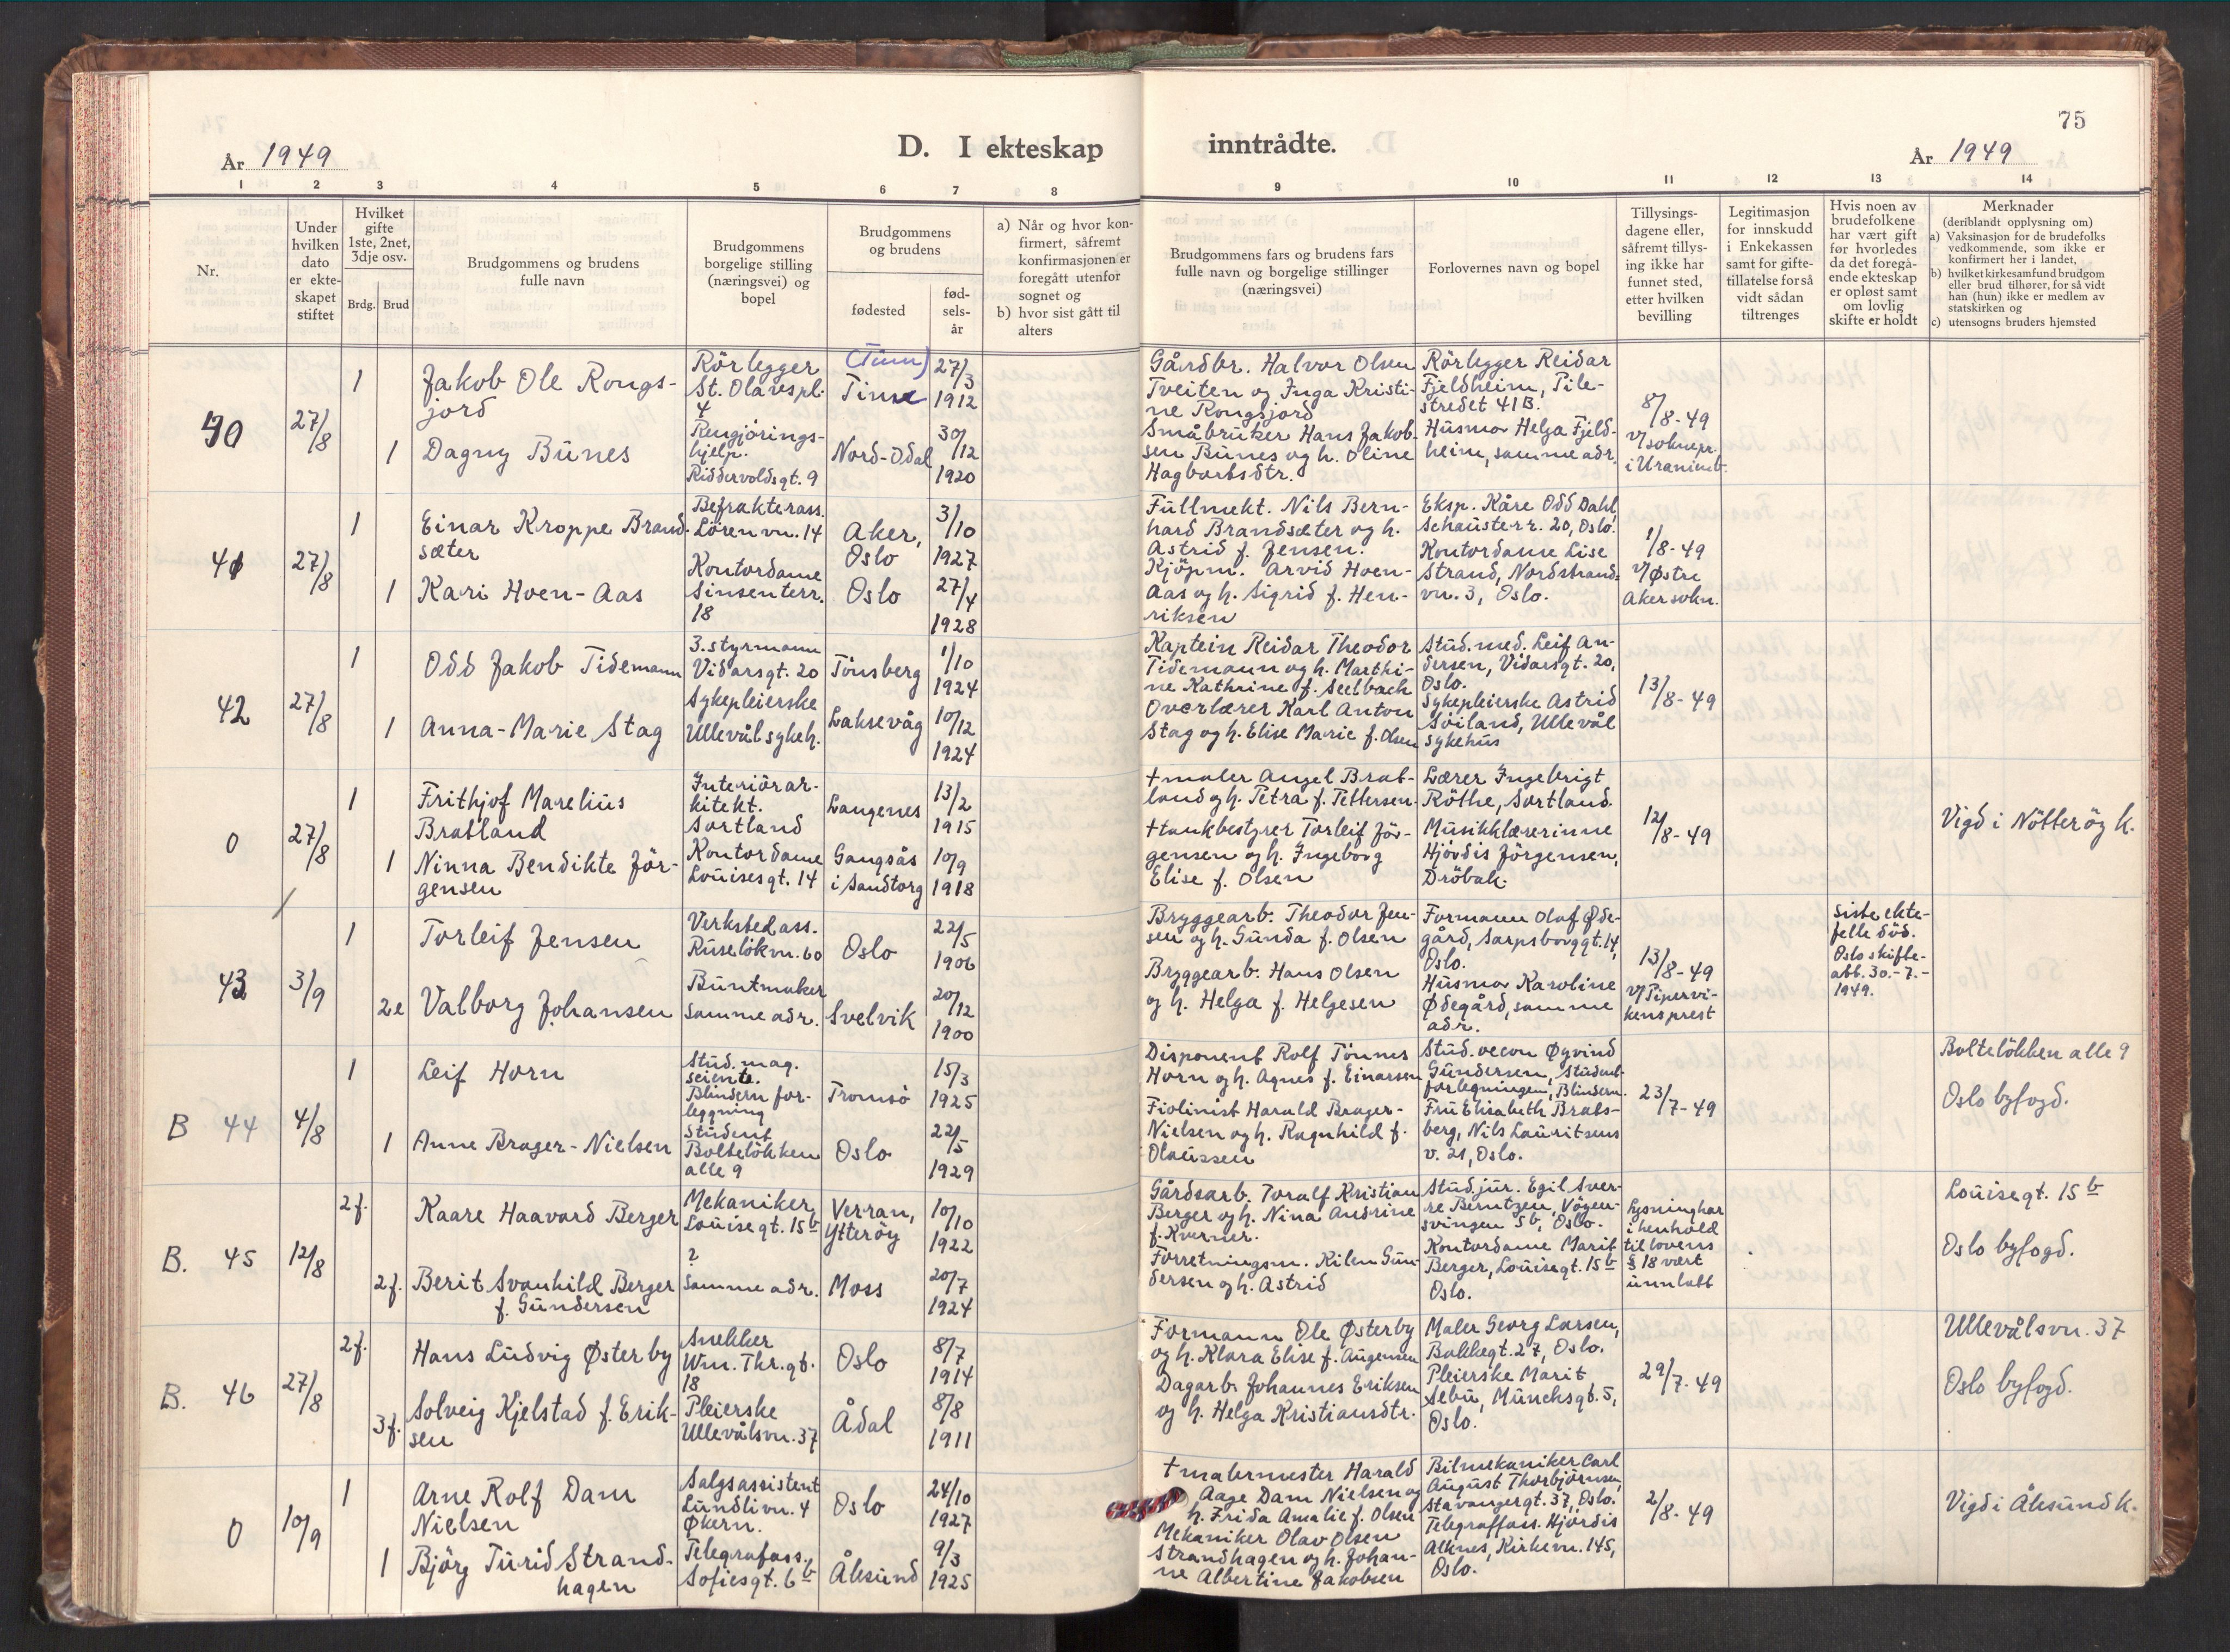 75
År 1949
D. I ekteskap inntrådte.
År 1949
1 2 3 4 5 6 7 8 9 10 11 12 13 14
Nr.
Under
hvilken
dato
er ekte-
skapet
stiftet
Hvilket
gifte
1ste, 2net,
3dje osv.
Brdg. Brud
Brudgommens og brudens
fulle navn
Brudgommens
borgelige stilling
(næringsvei) og
bopel
Brudgommens
og brudens
fødested
fød-
sels-
år
a) Når og hvor kon-
firmert, såfremt
konfirmasjonen er
foregått utenfor
sognet og
b) hvor sist gått til
alters
Brudgommens fars og brudens fars
fulle navn og borgelige stillinger
(næringsvei)
Forlovernes navn og bopel
Tillysings-
dagene eller,
såfremt tillys-
ing ikke har
funnet sted,
etter hvilken
bevilling
Legitimasjon
for innskudd
i Enkekassen
samt for gifte-
tillatelse forså
vidt sådan
tiltrenges
Hvis noen av
brudefolkene
har vært gift
før hvorledes
da det foregå-
ende ekteskap
er opløst samt
om lovlig
skifte er holdt
Merknader
(deriblandt opplysning om)
a) Vaksinasjon for de brudefolks
vedkommende, som ikke er
konfirmert her i landet,
b) hvilket kirkesamfund brudgom
eller brud tilhører, for så vidt
han (hun) ikke er medlem av
statskirken og
c) utensogns bruders hjemsted
40
27/8
1
Jakob Ole Rongs-
jord
Rörlegger
St. Olavspl.
4
(Tinn)
Tinn
27/3
1912
1
Dagny Bünes
Rengjörings-
hjelp.
Riddervoldsgt. 9
Nord-Odal
30/12
1920
Gårdbr. Halvor Olsen
Tveiten og Inga Kristi-
ne Rongsjord
Småbruker Hans Jakob-
sen Bünes og h. Oline
Hagbartsdtr.
Rörlegger Reidar
Fjeldheim, Pile-
stredet 41B.
Husmor Helga Fjeld-
heim, samme adr.
8/8-49
v/sokнepr.
i Uranienb.
41
27/8
1
Einar Kroppe Brand-
sæter
Befrakterass.
Lörenvn. 14
Aker,
Oslo
3/10
1927
1
Kari Hoen-Aas
Kontordame
Sinsenterr.
18
Oslo
27/4
1928
Fullmekt. Nils Bern-
hard Brandsæter og h.
Astrid f. Jensen.
Kjöpm. Arvid Hoen-
Aas og h. Sigrid f. Hen-
riksen
Eksp. Kåre Odd Dahl,
Schausterr. 20, Oslo.
Kontordame Lise
Strand, Nordstrand-
vn. 3, Oslo.
1/8-49
v/Østre
Aker sokn.
42
27/8
1
Odd Jakob Tidemann
3. styrmann
Vidarsgt. 20
Tönsberg
1/10
1924
1
Anna-Marie Stag
Sykepleierske
Ullevål sykeh.
Laksevåg
10/12
1924
Kaptein Reidar Theodor
Tidemann og h. Marthi-
ne Kathrine f. Seelbach
Overlærer Karl Anton
Stag og h. Elise Marie f. Olsen
Stud. med. Leif An-
dersen, Vidarsgt. 20,
Oslo.
Sykepleierske Astrid
Söiland, Ullevål
sykehus
13/8-49
0
27/8
1
Frithjof Marelius
Bratland
Interiörar-
kitekt.
Sortland
Langenes
13/2
1915
1
Ninna Bendikte Jör-
gensen
Kontordame
Louisesgt. 14
Gangsås
i Sandtorg
10/9
1918
+maler Angel Brat-
land og h. Petra f. Pettersen.
+bankbestyrer Torleif Jör-
gensen og h. Ingeborg
Elise f. Olsen
Lærer Ingebrigt
Röthe, Sortland.
Musikklærerinne
Hjördis Jörgensen,
Dröbak.
12/8-49
Vigd i Nötteröy k.
43
3/9
1
Torleif Jensen
Verksted ass.
Ruselökvn. 60
Oslo
22/5
1906
2e
Valborg Johansen
Buntmaker
samme adr.
Svelvik
20/12
1900
Bryggearb. Theodor Jen-
sen og h. Gunda f. Olsen
Bryggearb. Hans Olsen
og h. Helga f. Helgesen
Formann Olaf Øde-
gård, Sarpsborggt. 14,
Oslo.
Husmor Karoline
Ødegård, samme
adr.
13/8-49
v/Pipervi-
kens prest
Siste ekte-
felle död.
Oslo skifte-
att. 30.-7.-
1949.
B 44
4/8
1
Leif Horn
Stud. mag.
scient.
Blindern for-
leggning
Tromsö
15/3
1925
1
Anne Brager-Nielsen
Student
Bolteløkken
alle 9
Oslo
22/5
1929
Disponent Rolf Tönnes
Horn og h. Agnes f. Einarsen
Fiolinist Harald Brager-
Nielsen og h. Ragnhild f.
Olaussen
Stud. oecon Øyvind
Gundersen, Student-
forlegningen, Blindern.
Fru Elisabeth Brats-
berg, Nils Lauritsens
v. 21, Oslo.
23/7-49
Boltelökken alle 9
Oslo byfogd.
B. 45
12/8
2f.
Kaare Haavard Berger
Mekaniker,
Louisegt. 15b
Verran,
Ytteröy
10/10
1922
2f.
Berit Svanhild Berger
f. Gundersen
?
samme adr.
Moss
20/7
1924
Gårdsarb. Toralf Kristian
Berger og h. Nina Andrine
f. Kverner.
Forretningsm. Kilen Gun-
dersen og h. Astrid
Stud. jur. Egil Sver-
re Berntzen, Vögen-
svingen 5b, Oslo.
Kontordame Marit
Berger, Louisegt. 15b
Oslo.
Lysning har
i henhold
til lovens
§ 18 vært
unnlatt
Louisegt. 15b
Oslo byfogd.
B. 46
27/8
2f.
Hans Ludvig Østerby
Snekker
Wm. Thr. gt.
18
Oslo
8/7
1914
3f.
Solveig Kjelstad f. Erik-
sen
Pleierske
Ullevålsvn. 37
Ådal
8/8
1911
Formann Ole Østerby
og h. Klara Elise f. Augensen
Dagarb. Johannes Eriksen
og h. Helga Kristiansdtr.
Maler Georg Larsen,
Bakkegt. 27, Oslo.
Pleierske Marit
Sebu, Munchsgt. 5,
Oslo.
29/7-49
Ullevålsvn. 37
Oslo byfogd.
0
10/9
1
Arne Rolf Dam
Nielsen
Salgsassistent
Lundlivn. 4
Økern.
Oslo
24/10
1927
1
Björg Turid Strand-
hagen
Telegrafass.
Sofiesgt. 6b
Ålesund
9/3
1925
+malermester Harald
Aage Dam Nielsen og
h. Frida Amalie f. Olsen
Mekaniker Olav Olsen
Strandhagen og h. Johan-
ne Albertine Jakobsen
Bilmekaniker Carl
August Thorbjörnsen,
Stavangergt. 37, Oslo.
Telegraffass. Hjördis
Alknes, Kirkevn. 145,
Oslo.
2/8-49
Vigd i Ålesund k.